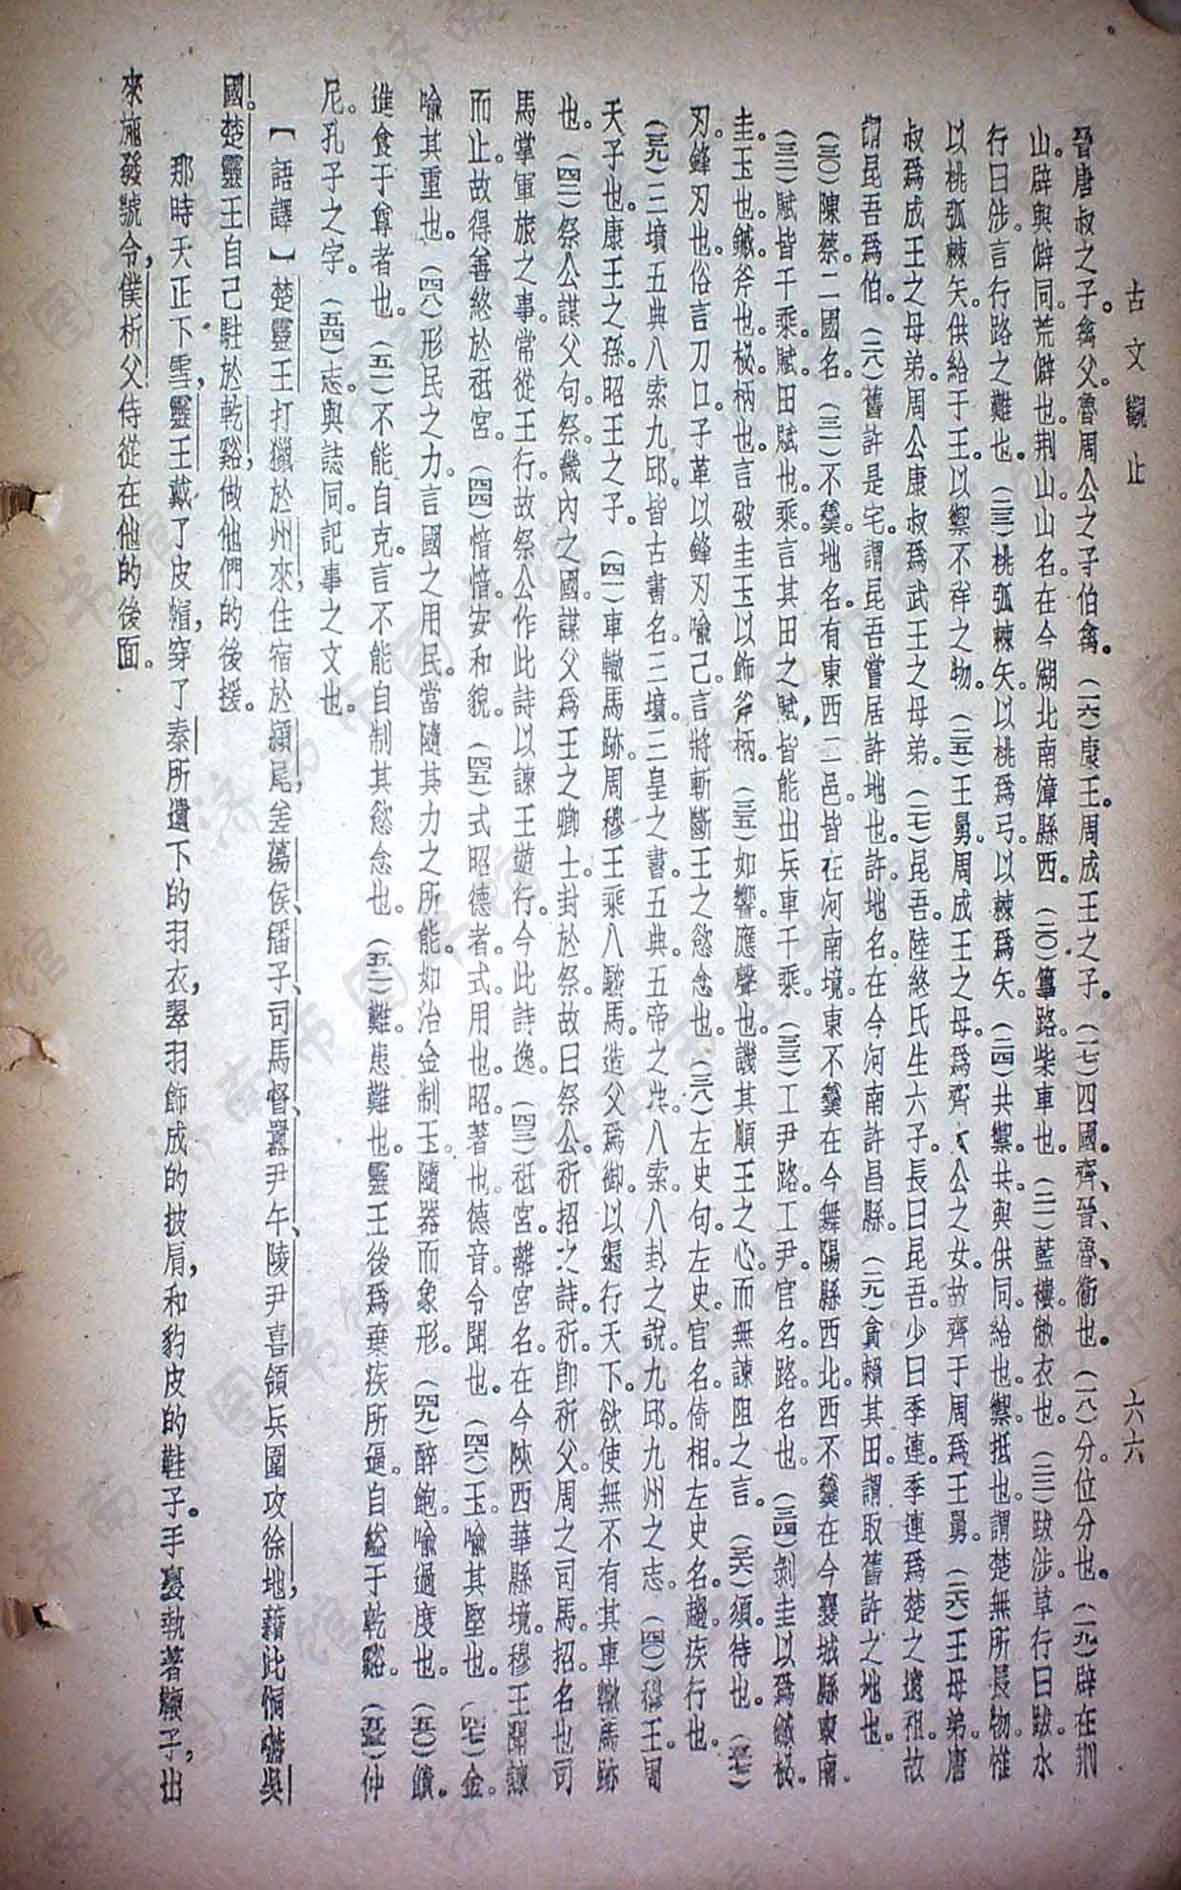 古文觀止
六六
晉唐叔之子。禽父。魯周公之子伯禽。(一六)康王。周成王之子。(一七)四國。齊、晉、魯、衞也。(一八)分。位分也。(一九)辟在荆
山。辟與僻同。荒僻也。荆山。山名。在今湖北南漳縣西。(二〇)篳路。柴車也。(二一)藍褸。敝衣也。(二二)跋涉。草行曰跋。水
行曰涉。言行路之難也。(二三)桃弧棘矢。以桃爲弓。以棘爲矢。(二四)共禦。共與供同。給也。禦。抵也。謂楚無所長物。惟
以桃弧棘矢。供給于王。以禦不祥之物。(二五)王舅。周成王之母。爲齊 公之女。故齊于周爲王舅。(二六)王母弟。唐
叔爲成王之母弟。周公康叔爲武王之母弟。(二七)昆吾。陸終氏生六子。長曰昆吾。少曰季連。季連爲楚之遠祖。故
謂昆吾爲伯。(二八)舊許是宅。謂昆吾嘗居許地也。許。地名。在今河南許昌縣。(二九)貪賴其田。謂取舊許之地也。
(三〇)陳蔡。二國名。(三一)不羹。地名。有東西二邑。皆在河南境。東不羹在今舞陽縣西北。西不羹在今襄城縣東南。
(三二)賦皆千乘。賦。田賦也。乘。言其田之賦,皆能出兵車千乘。(三三)工尹路。工尹。官名。路。名也。(三四)剝圭以爲鏚柲。
圭。玉也。鏚。斧也。柲。柄也。言破圭玉以飾斧柄。(三五)如響。應聲也。譏其順王之心。而無諫阻之言。(三六)須。待也。(三七)
刃。鋒刃也。俗言刀口。子革以鋒刃喻己。言將斬斷王之慾念也。(三八)左史句。左史。官名。倚相。左史名。趨。疾行也。
(三九)三墳五典八索九邱。皆古書名。三墳。三皇之書。五典。五帝之典。八索。八卦之說。九邱。九州之志。(四〇)穆王。周
天子也。康王之孫。昭王之子。(四一)車轍馬跡。周穆王乘八駿馬。造父爲御。以遍行天下。欲使無不有其車轍馬跡
也。(四二)祭公謀父句。祭。畿內之國。謀父爲王之卿士。封於祭。故曰祭公。祈招之詩。祈。卽祈父。周之司馬。招。名也。司
馬掌軍旅之事。常從王行。故祭公作此詩以諫王遊行。今此詩逸。(四三)祗宮。離宮名。在今陝西華縣境。穆王聞諫
而止。故得善終於祗宮。(四四)愔愔。安和貌。(四五)式昭德者。式。用也。昭。著也。德音。令聞也。(四六)玉。喻其堅也。(四七)金。
喻其重也。(四八)形民之力。言國之用民。當隨其力之所能。如治金制玉。隨器而象形。(四九)醉飽。喻過度也。(五〇)饋。
進食于尊者也。(五一)不能自克。言不能自制其慾念也。(五二)難。患難也。靈王後爲棄疾所逼。自縊于乾谿。(五三)仲
尼。孔子之字。(五四)志。與誌同。記事之文也。
【語譯】楚靈王打獵於州來,住宿於潁尾,差蕩侯、潘子、司馬督、囂尹午、陵尹喜領兵圍攻徐地,藉此恫嚇吳
國。楚靈王自己駐於乾谿,做他們的後援。
那時天正下雪,靈王戴了皮帽,穿了秦所遺下的羽衣,翠羽飾成的披肩,和豹皮的鞋子。手裏執著鞭子,出
來施發號令,僕析父侍從在他的後面。